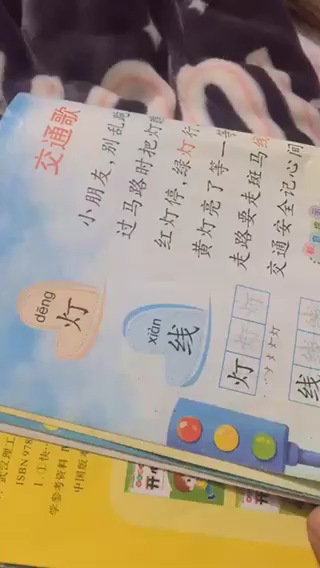 交通歌
小朋友，别乱跑
过马路时把灯
红灯停，绿灯行
黄灯亮了等一等
走路要走斑马线
交通安全记心间
dēng
灯
xiàn
线
灯 灯 灯
线
武汉理工
ISBN 978
1. ①快…
学参考资料
中国版本